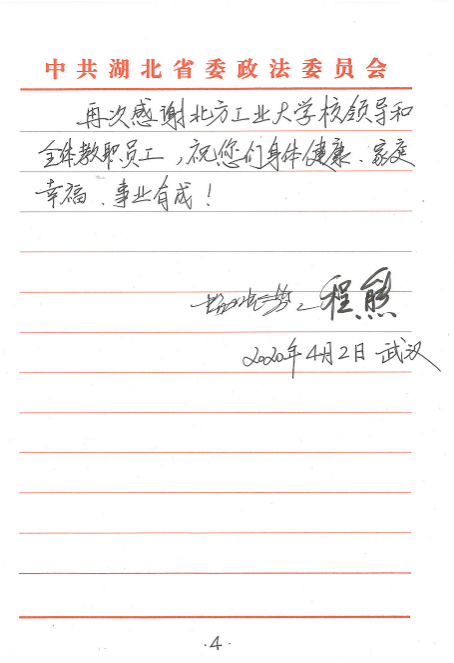 中共湖北省委政法委员会
再次感谢北方工业大学校领导和
全体教职员工，祝您们身体健康、家庭
幸福、事业有成！
程熊
2020年4月2日 武汉
·4·